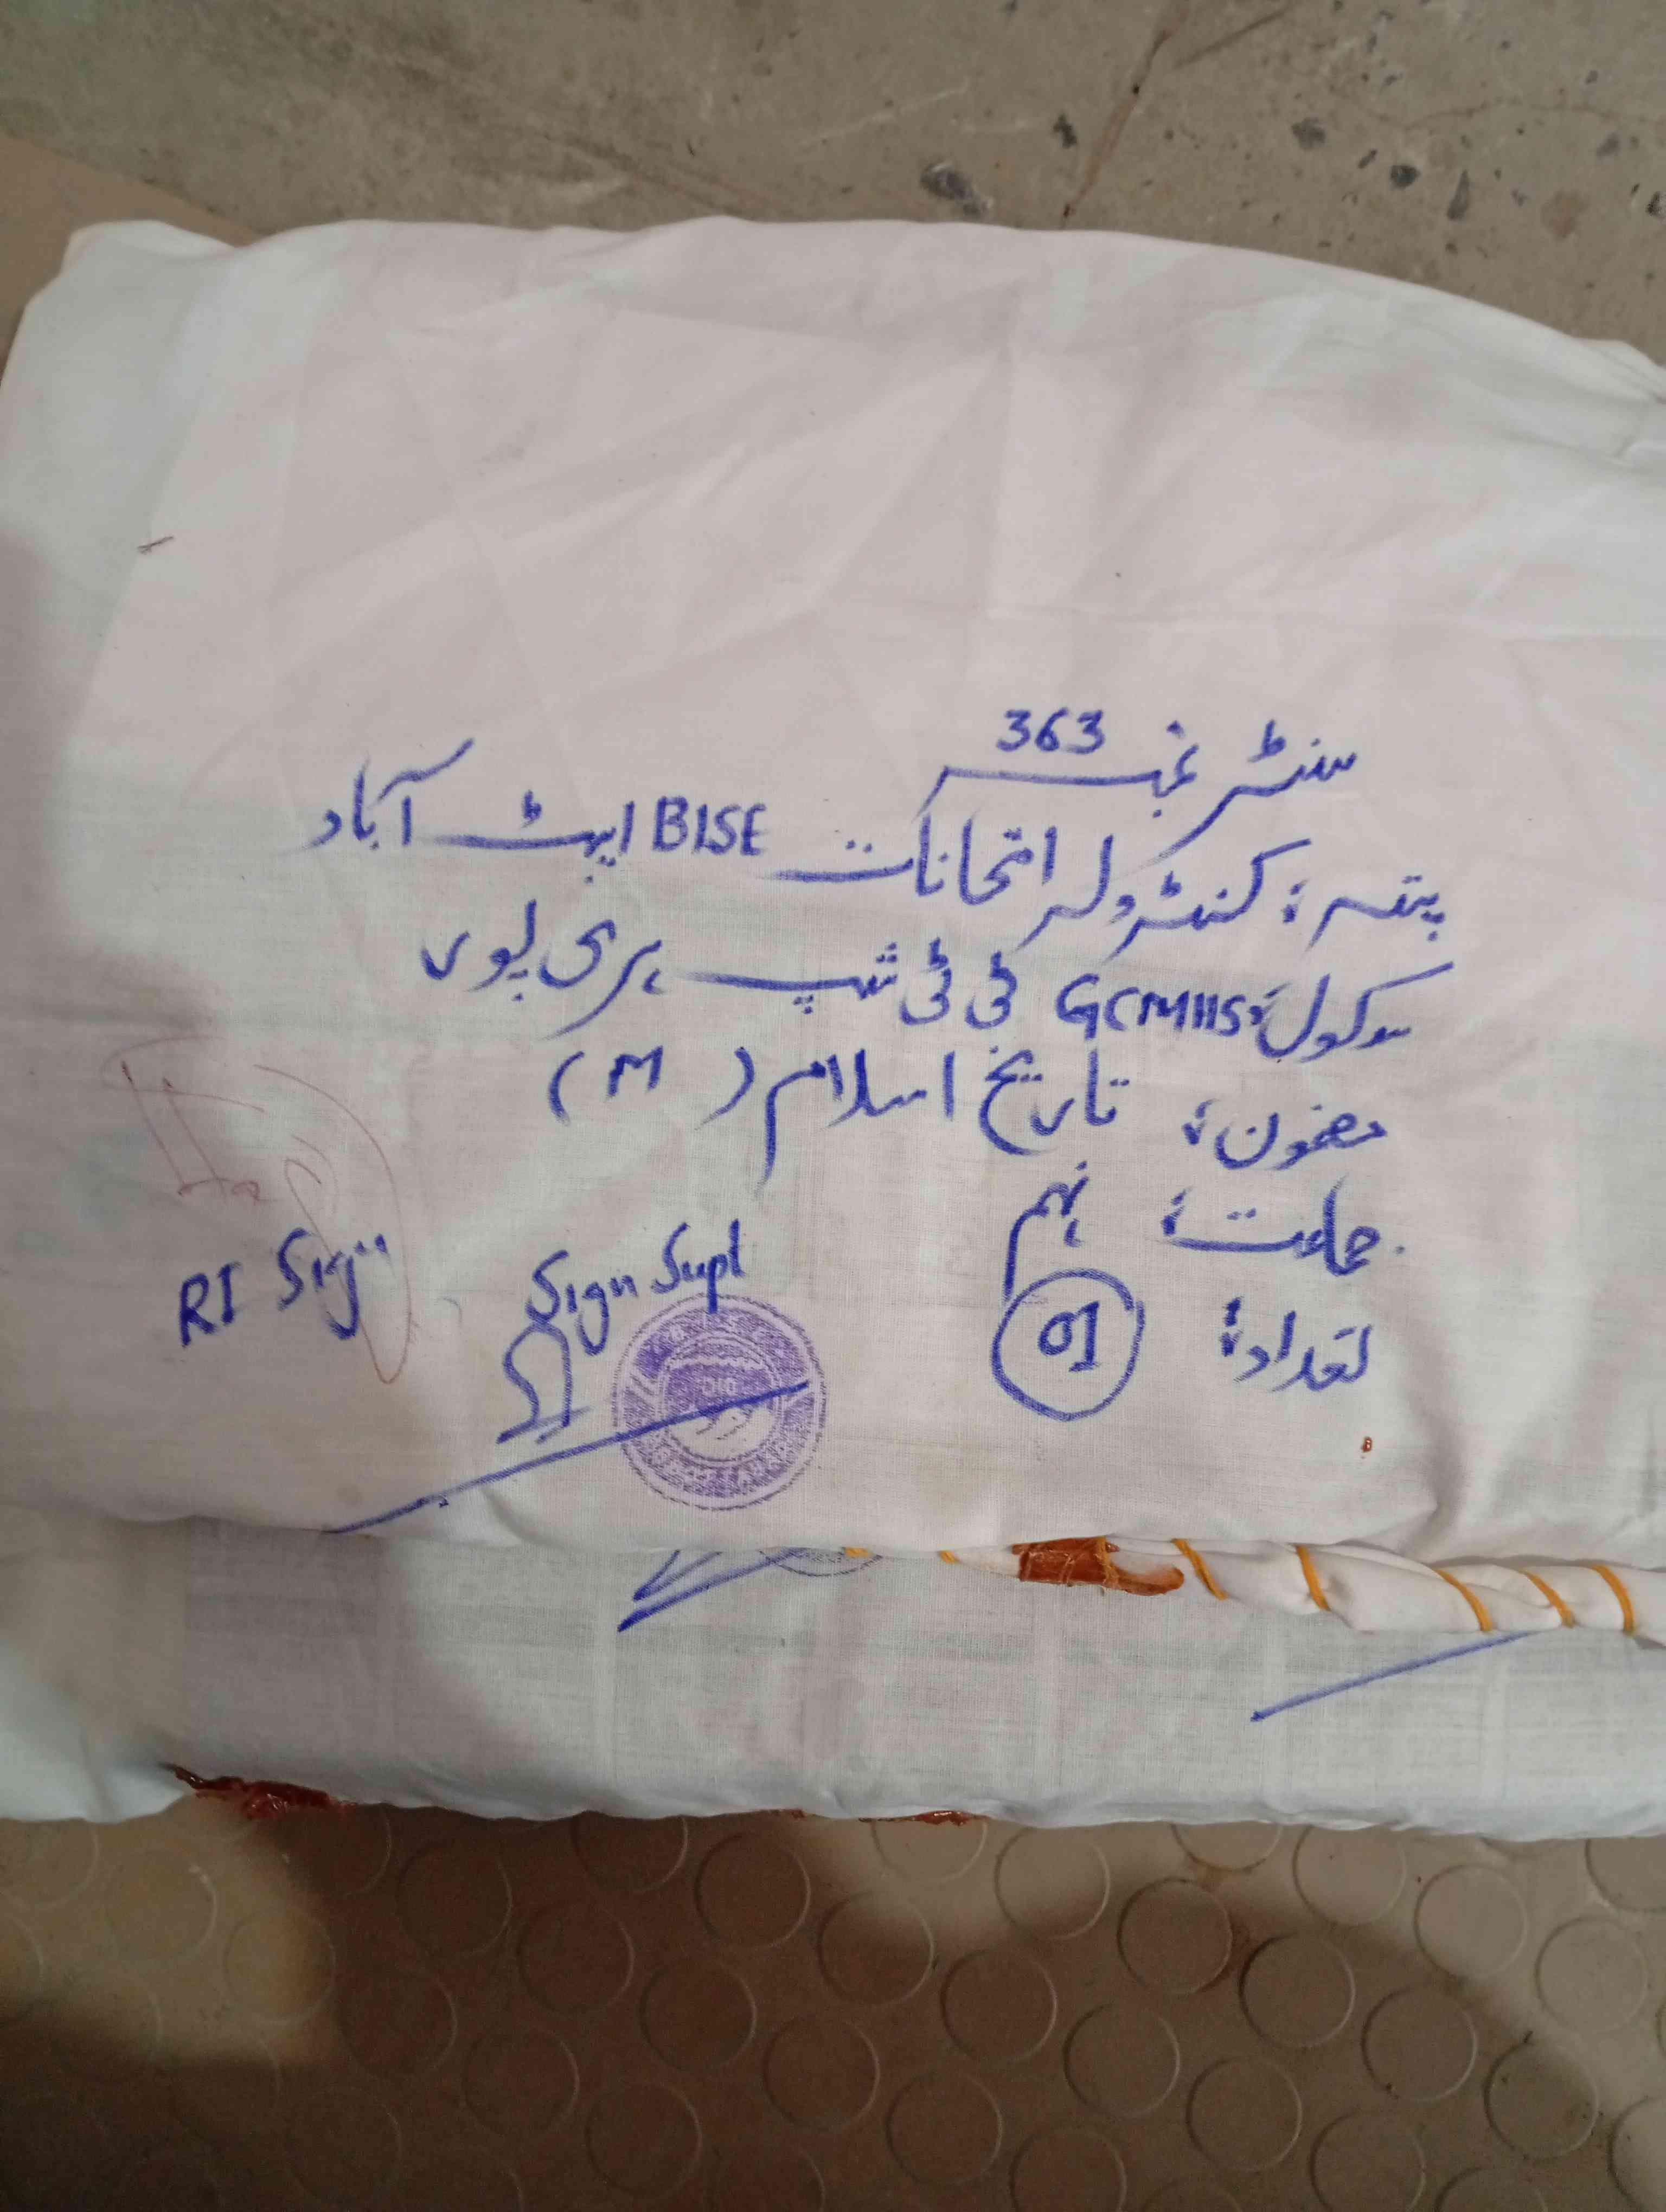 سنٹر نمبر 363
پتہ: کنٹرولر امتحانات BISE ایبٹ آباد
سکول: GCMHS ٹی ٹی شپ ہری پور
مضمون: تاریخ اسلام (M)
جماعت: نہم
تعداد: 01
Sign Supt
RI Sign